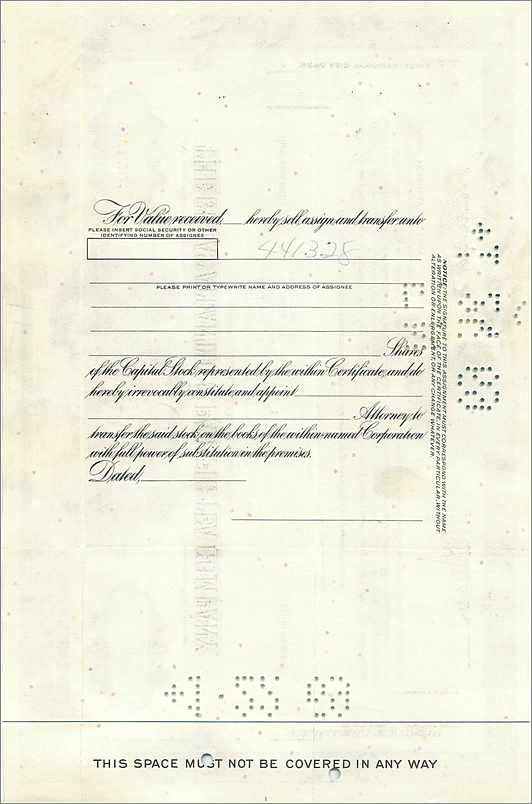 For Value received, hereby sell, assign, and transfer unto
PLEASE INSERT SOCIAL SECURITY OR OTHER
IDENTIFYING NUMBER OF ASSIGNEE
441328
PLEASE PRINT OR TYPEWRITE NAME AND ADDRESS OF ASSIGNEE
Shares
of the Capital Stock represented by the within Certificate, and do
hereby irrevocably constitute and appoint
Attorney to
transfer the said stock on the books of the within-named Corporation
with full power of substitution in the premises.
Dated,
NOTICE: THE SIGNATURE TO THIS ASSIGNMENT MUST CORRESPOND WITH THE NAME
AS WRITTEN UPON THE FACE OF THE CERTIFICATE, IN EVERY PARTICULAR, WITHOUT
ALTERATION OR ENLARGEMENT, OR ANY CHANGE WHATEVER.
THIS SPACE MUST NOT BE COVERED IN ANY WAY